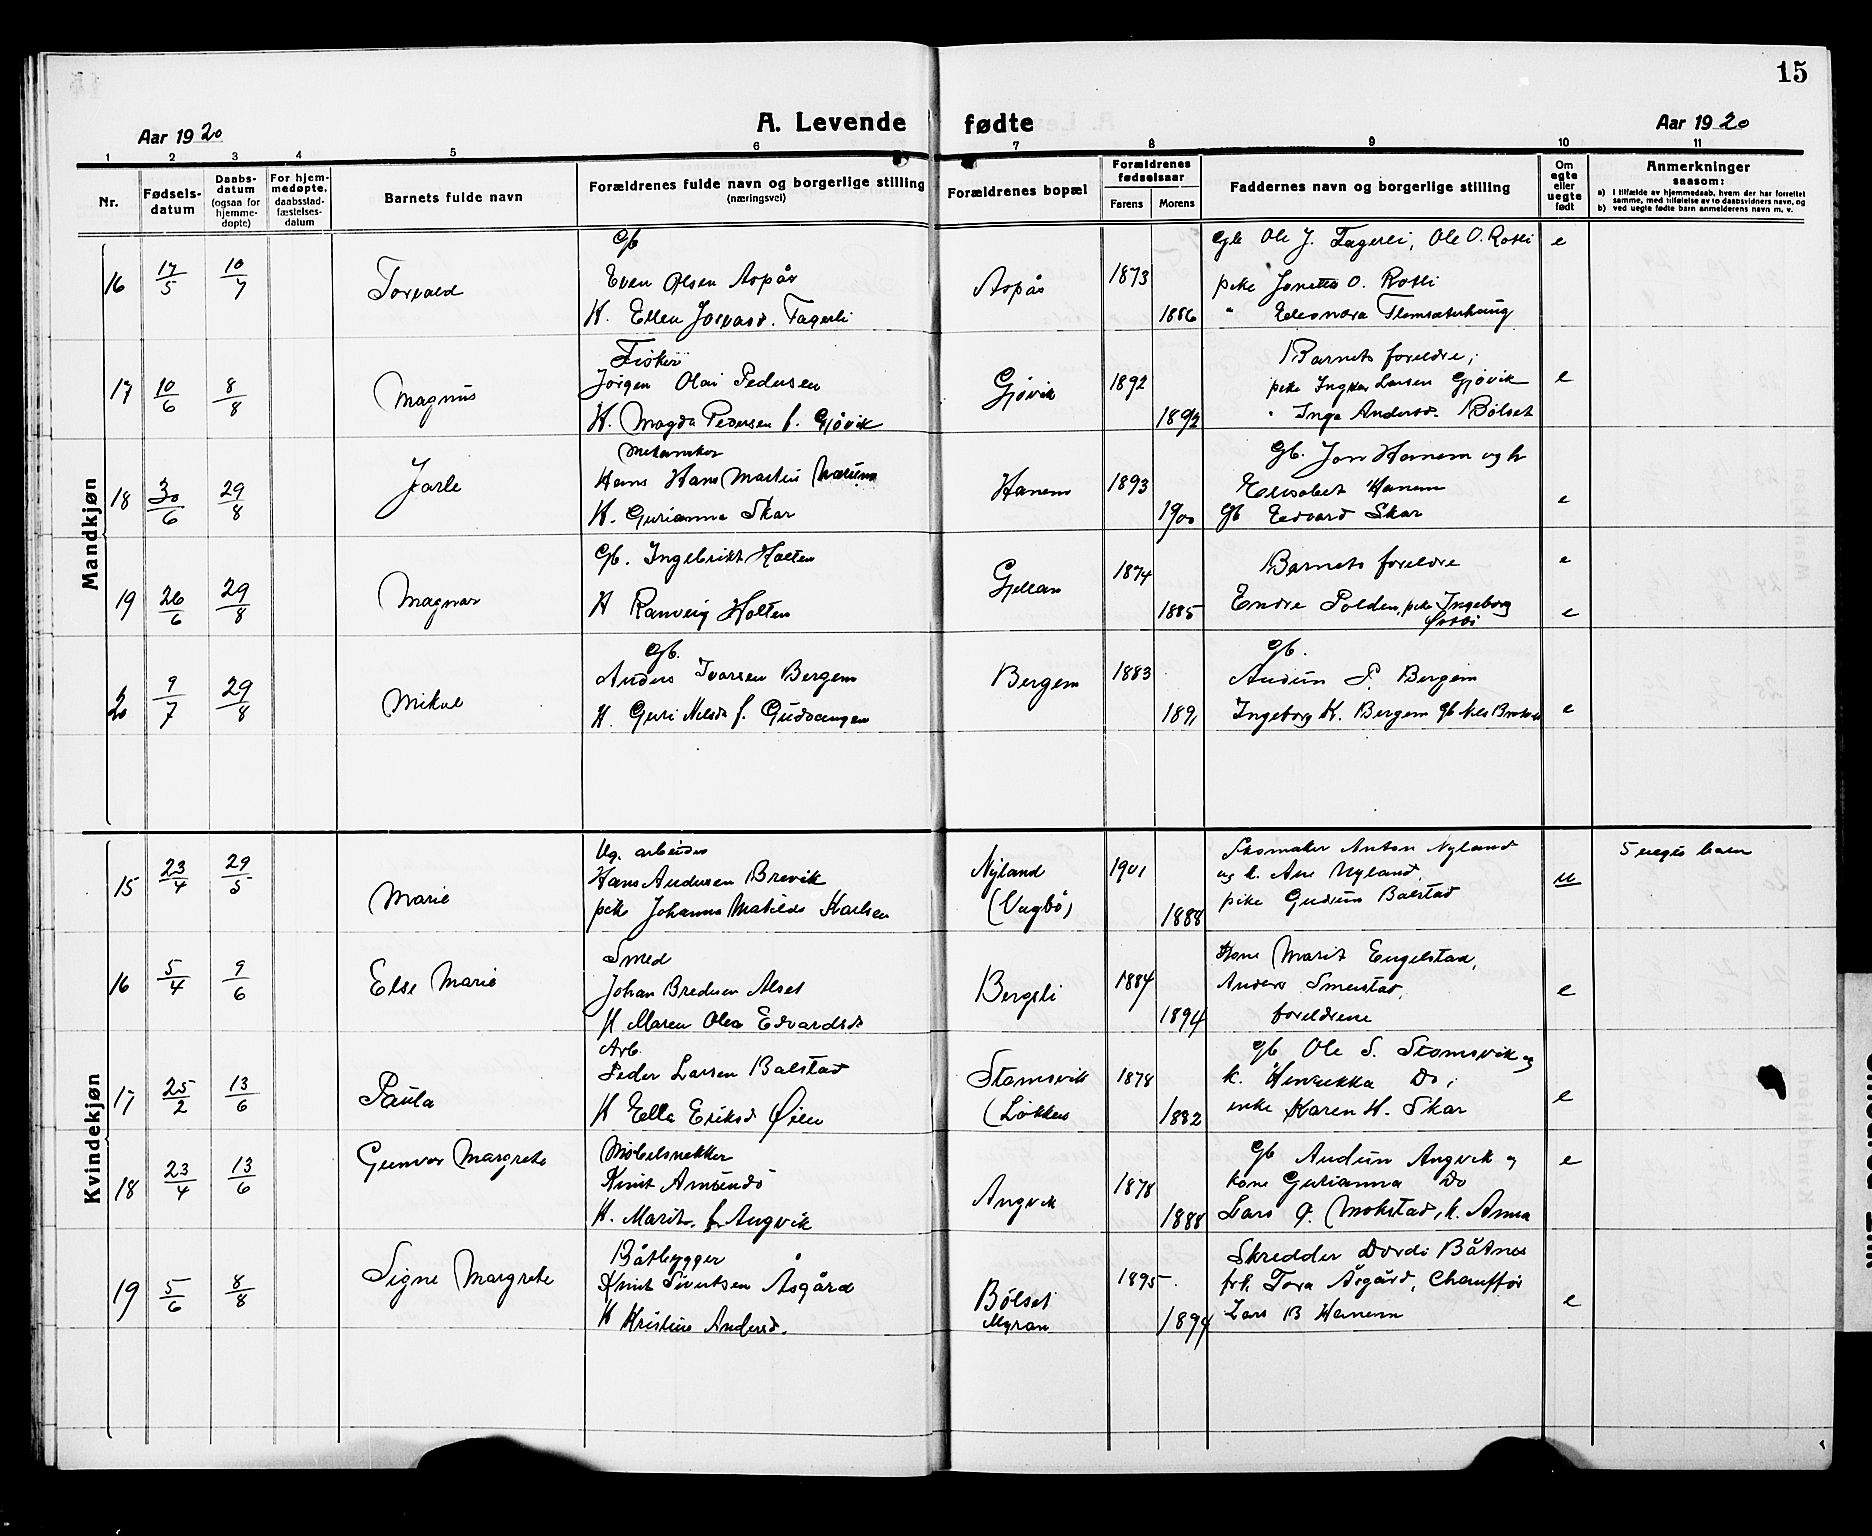 15
Aar 1920
A. Levende fødte
Aar 1920
1 2 3 4 5 6 7 8 9 10 11
Nr.
Fødsels-
datum
Daabs-
datum
(ogsaa for
hjemme-
døpte)
For hjem-
medøpte,
daabsstad-
fæstelses-
datum
Barnets fulde navn
Forældrenes fulde navn og borgerlige stilling
(næringsvei)
Forældrenes bopæl
Forældrenes
fødselsaar
Farens
Morens
Faddernes navn og borgerlige stilling
Om
egte
eller
uegte
født
Anmerkninger
saasom:
a) I tilfælde av hjemmedaab, hvem der har forrettet
samme, med tilføielse av to daabsvidners navn, og
b) ved uegte fødte barn anmelderens navn m. v.
Mandkjøn
16 17/5 10/7 Torvald
Gb
Even Olsen Aspås
K. Ellen Fagerli
Aspås 1873 1886
Gb Ole J. Fagerli, Ole O. Rotli
pike O. Rotli
" e
17 10/6 8/8 Magnus
Fisker
Jørgen Olai Pedersen
K. Magda Pedersen f. Gjøvik
Gjøvik 1892 1892
Barnets foreldre;
pike Larsen Gjøvik
" Inga Andersd. Bølset e
18 30/6 29/8 Jarle
Hans Martin
K. Gurianna Skar
Hanem 1893 1900
Gb. Jon Hanem og h
Elisabet Hanem
Gb Edvard Skar e
19 26/6 29/8 Magnar
Gb. Ingebrikt Holten
K Ranveig Holten
Gjellan 1874 1885
Barnets foreldre e
Endre Polden, pike Ingeborg e
20 9/7 29/8 Mikal
Gb.
Anders Ivarsen Bergem
K. Guri Nilsd f. Gudvangen
Bergem 1883 1891
Gb.
Audun P. Bergem
Ingeborg K. Bergem Gb Nils e
Kvindekjøn
15 23/4 29/5 Marie
Ug. arbeider
Hans Andersen Brevik
pike Johanna Matilde Karlsen
Nyland 1901
(Vagbø) 1888
Skomaker Anton Nyland
og k. Ane Nyland,
pike Gudrun Balstad
u 5 uegte barn
16 5/4 9/6 Else Marie
Smed
Johan Bredesen Alset
K Maren Olea Edvardsd
Bergsli 1884 1894
Kone Marit Engelstad,
Anders Smevstad,
foreldrene e
17 25/2 13/6 Paula
Arb.
Peder Larsen Balstad
K Ella Eriksd Øien
Stomsvik 1878
(Løkken 1882
Gb Ole S. Stomsvik og
k. Henrikka Do;
enke Karen H. Skar e
18 23/4 13/6 Gunvor Margrete
Møbelsnekker
Knut Amundø
K. Marit, f. Angvik
Angvik 1878 1888
Gb Audun Angvik og e
kone Gurianna Do
Lars O. Mokstad, k. Anna
19 5/6 8/8 Signe Margrete
Båtbygger
Knut Sivertsen Åsgård
K Kristine Andersd.
Bølset 1895
Myran 1894
Skredder Dordi Båtnes
frk. Tora Åsgård, Chauffør
Lars B Hanem e